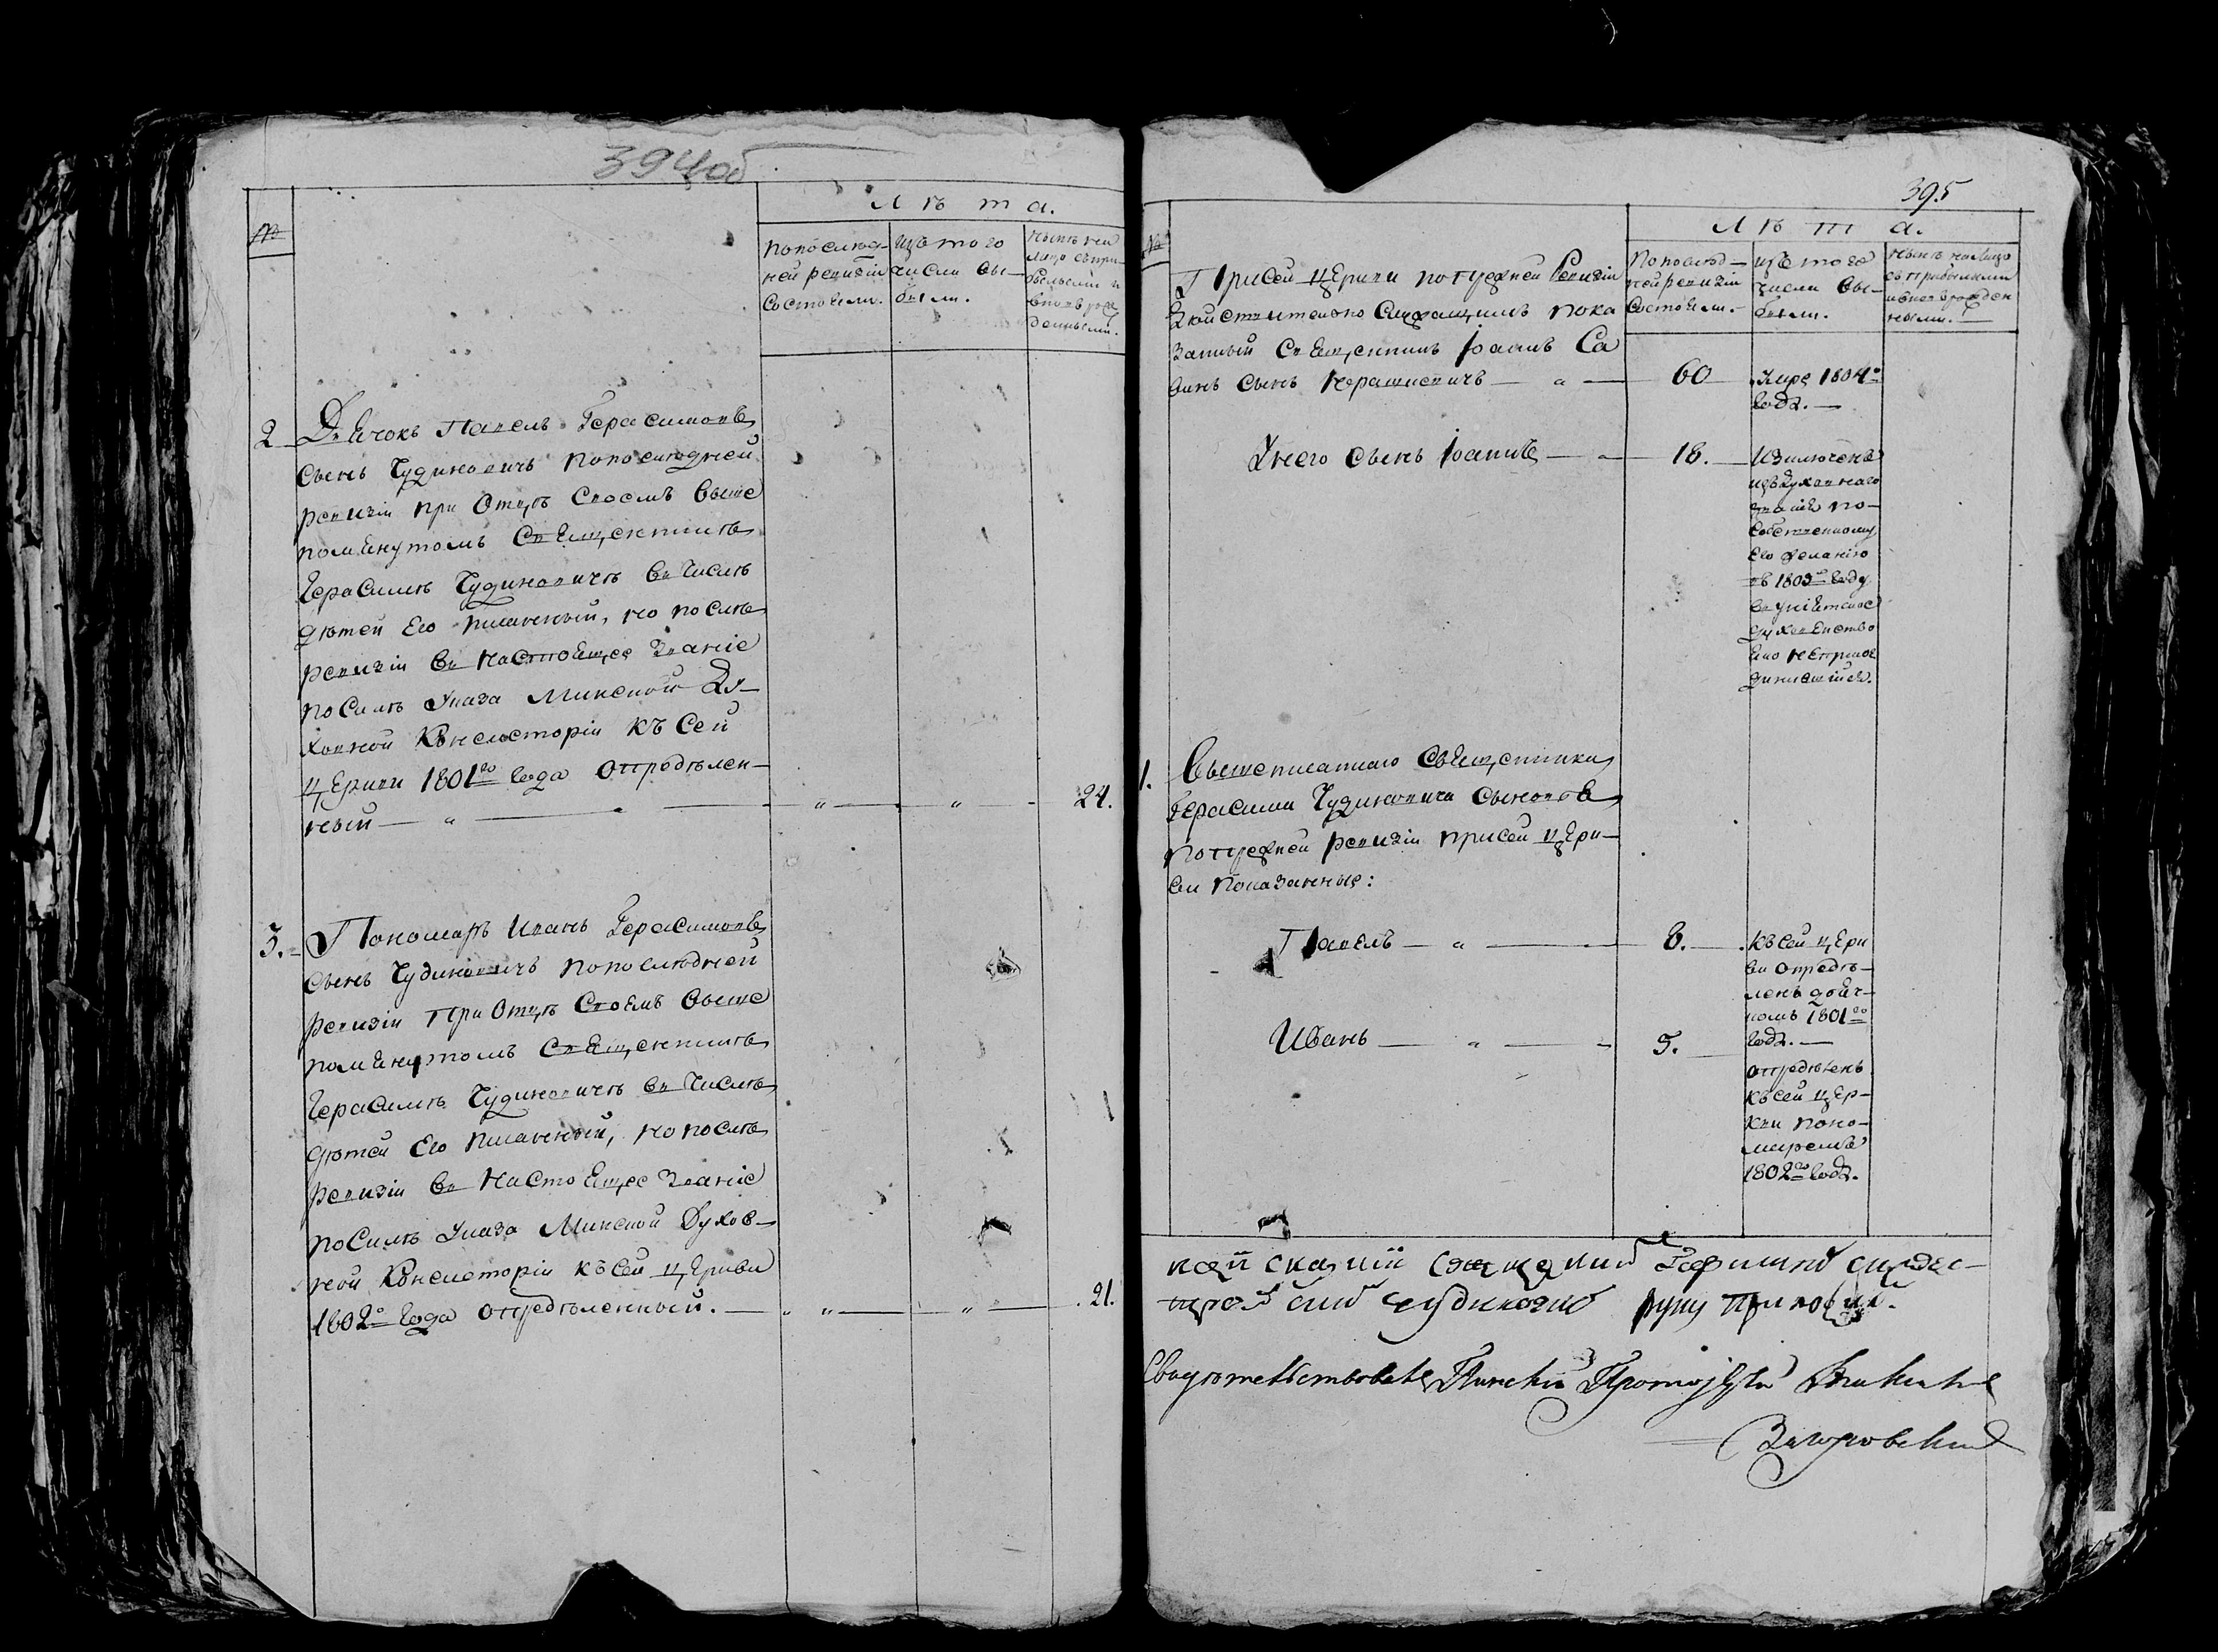 394об
№
Лѣта.
По послѣд-
ней ревизіи
состояли.
изъ того
числа вы-
были.
Нынѣ на
лицо съ при-
былыми и
вновь рож
денными.
2
Дьячокъ Павелъ Герасимовъ
сынъ Чудиновичъ по послѣдней
ревизіи при Отцѣ Своемъ выше
помянутомъ Священникѣ
Герасимѣ Чудиновичѣ въ числѣ
дѣтей Его писанный, но послѣ
ревизіи въ настоящее званіе
по силѣ Указа Минской Ду-
ховной Консисторіи къ Сей
Церкви 1801го года опредѣлен-
ный — „ — „ — „ — 24.
3.
Пономарь Иванъ Герасимовъ
сынъ Чудиновичъ по послѣдней
ревизіи при Отцѣ Своемъ выше
помянутомъ Священникѣ
Герасимѣ Чудиновичѣ въ числѣ
дѣтей Его писанный, но послѣ
ревизіи въ настоящее званіе
по силѣ Указа Минской Духов-
ной Консисторіи къ Сей Церкви
1802го года опредѣленный. — „ — „ — 21.
395
№
Лѣта.
По послѣд-
ней ревизіи
состояли.
изъ того
числа вы-
были.
Нынѣ на лицо
съ прибылыми
и вновь рожден
ными.
При сей Церкви по прежней Ревизіи
Дѣйствительно Служащимъ пока
занный Священникъ Іоаннъ Са
винъ сынъ — „ — 60
Умре 1804го
года. —
У него сынъ Іоаннъ — 18.
Изключенъ
изъ духовнаго
званія по
собственному
его желанію
въ 1803мъ году
въ уніятское
духовенство
яко не присое
динившійся.
1.
Вышеписаннаго Священника
Герасима Чудиновича сыновъ
по прежней ревизіи при сей Церк-
ви показанные:
Павелъ — „ — 8.
къ сей Церк
ви опредѣ-
ленъ дьяч-
комъ 1801го
года. —
Иванъ — „ — 5.
опредѣленъ
къ сей Цер-
кви поно-
маремъ
1802го года.
к сей скаски священникъ
чудиновичъ руку приложил.
Свидѣтельствовалъ Пинскій Протоіерей
Загоровскій